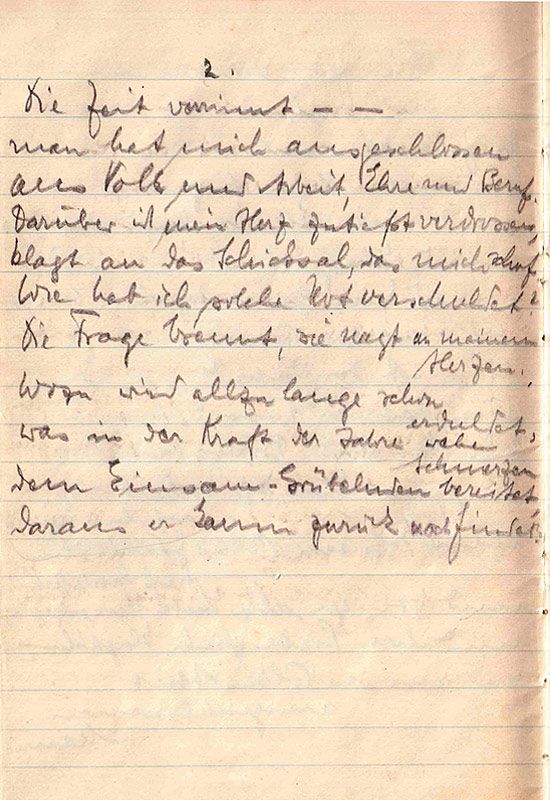 2.
Die Zeit verrinnt – –
man hat mich ausgeschlossen
aus Volk und Arbeit, Ehre und Beruf.
Darüber ist mein Herz zutiefst verdrossen,
klagt an das Schicksal, das mich schuf.
Wie hab ich solche Not verschuldet?
Die Frage brennt, sie nagt an meinem
Herzen.
Wozu wird allzu lange schon
erduldet,
was in der Kraft der Jahre wehe
Schmerzen
dem Einsam-Grübelnden bereitet,
daraus er kaum zurück noch findet